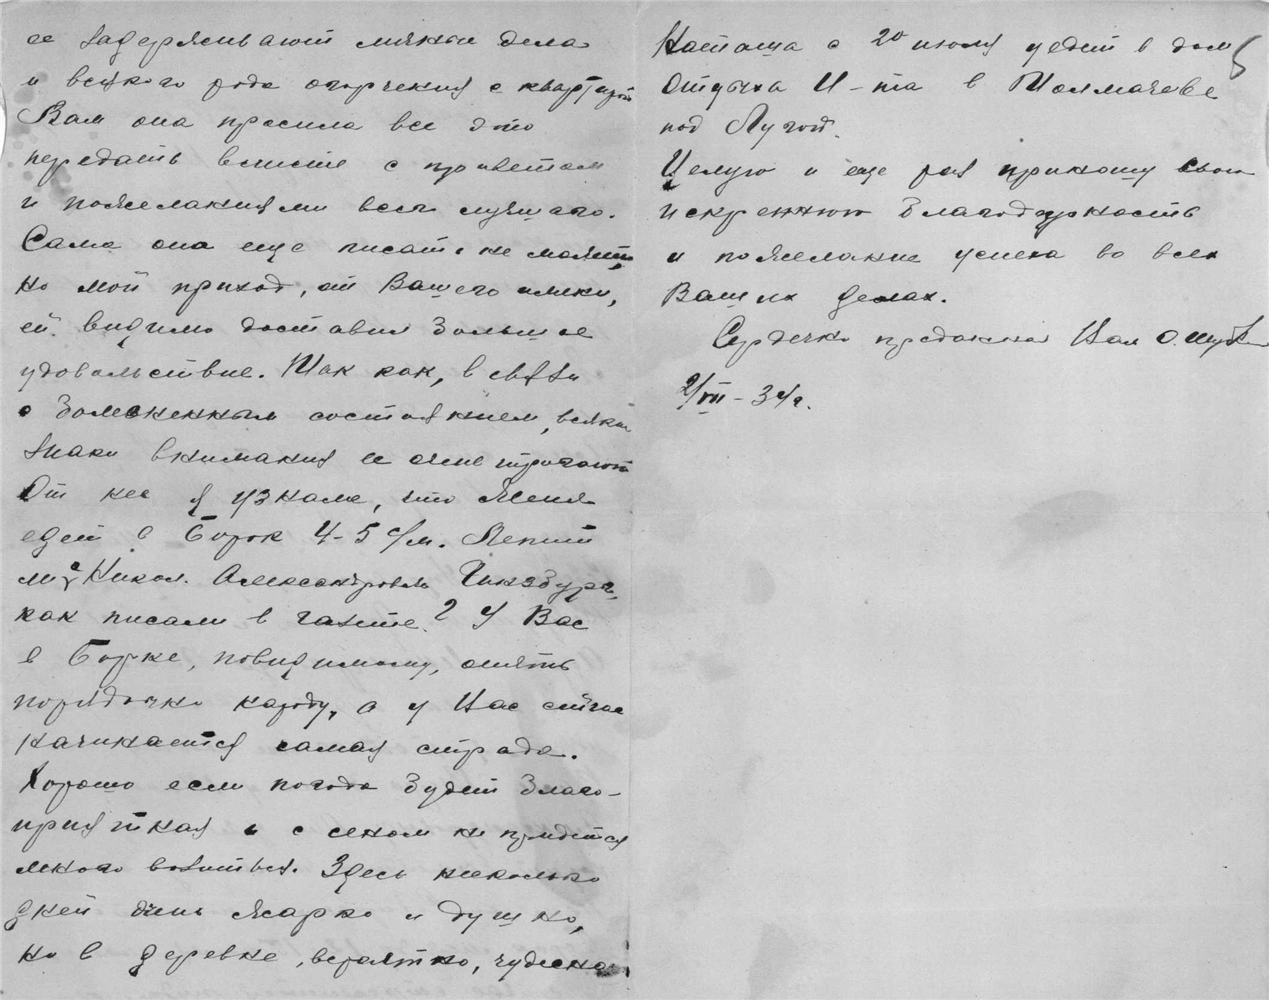 ее задерживают мелкие дела
и всякого рода огорчения с квартирой
Вам она просила все это
передать вместе с приветом
и пожеланиями всего лучшего.
Сама она еще писать не может,
но мой приход, от Вашего имени,
ей видимо доставил большое
удовольствие. Так как, в связи
с болезненным состоянием, всякие
знаки внимания ее очень трогают
От нее я узнала, что Женя
едет в Борок 4-5 с/м. Летит
ли Никол. Александрович Гинзбург,
как писали в газете? У Вас
в Борке, повидимому, опять
порядочно народу, а у Вас сейчас
начинается самая страда.
Хорошо если погода будет благо-
приятная и с сеном не придется
много возиться. Здесь несколько
дней очень жарко и душно,
но в деревне, вероятно, чудесно
Наташа с 20 июля уедет в дом
Отдыха И-та в Толмачеве
под Лугой.
Целую и еще раз приношу свою
искреннюю благодарность
и пожелание успеха во всех
Ваших делах.
Сердечно преданная Вам О.
2/VII-34г.
5